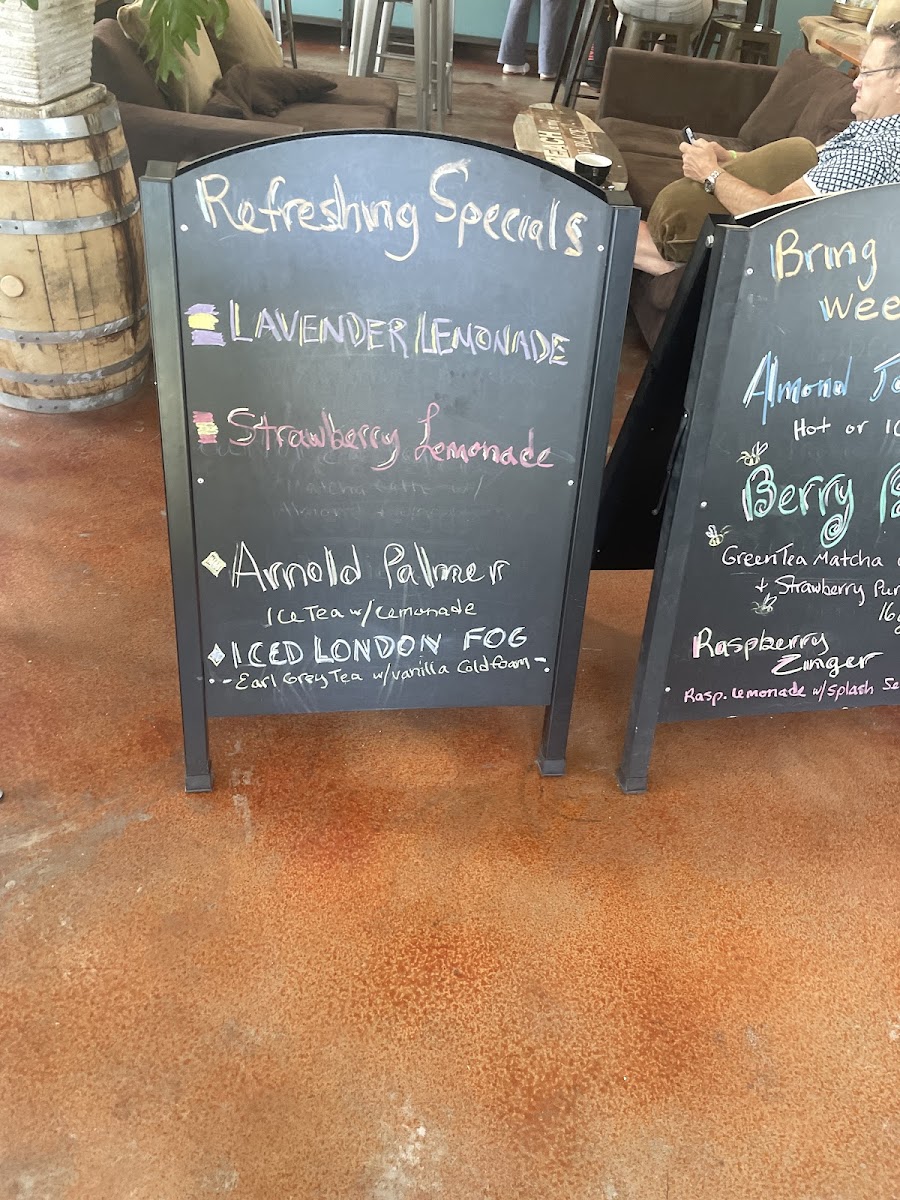 Refreshing Specials
LAVENDER LEMONADE
Strawberry Lemonade
Arnold Palmer
Ice Tea w/Lemonade
ICED LONDON FOG
- Earl Grey Tea w/vanilla Coldfoam -
Bring
wee
Almond
Hot or
Berry B
GreenTea Matcha
+ Strawberry Pur
16
Raspberry
Zinger
Rasp. Lemonade w/splash Se
BEACH